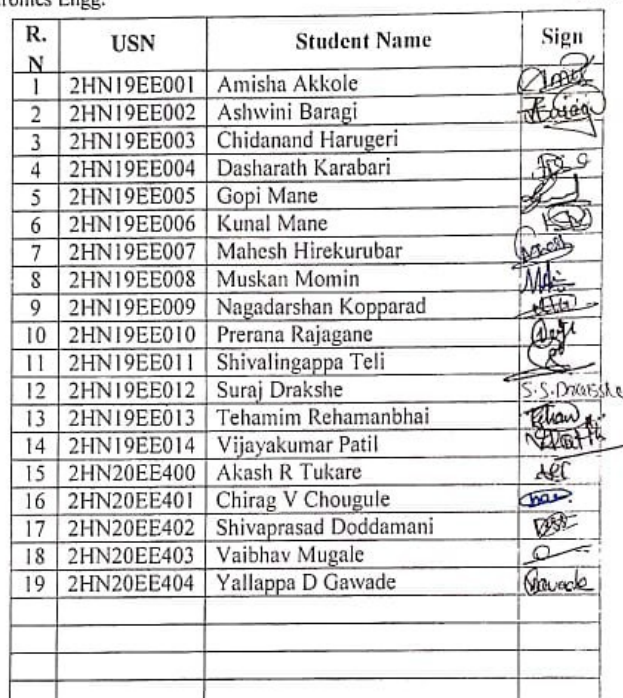 Engg.
R. N USN Student Name Sign
1 2HN19EE001 Amisha Akkole
2 2HN19EE002 Ashwini Baragi
3 2HN19EE003 Chidanand Harugeri
4 2HN19EE004 Dasharath Karabari
5 2HN19EE005 Gopi Mane
6 2HN19EE006 Kunal Mane
7 2HN19EE007 Mahesh Hirekurubar
8 2HN19EE008 Muskan Momin
9 2HN19EE009 Nagadarshan Kopparad
10 2HN19EE010 Prerana Rajagane
11 2HN19EE011 Shivalingappa Teli
12 2HN19EE012 Suraj Drakshe
13 2HN19EE013 Tehamim Rehamanbhai
14 2HN19EE014 Vijayakumar Patil
15 2HN20EE400 Akash R Tukare
16 2HN20EE401 Chirag V Chougule
17 2HN20EE402 Shivaprasad Doddamani
18 2HN20EE403 Vaibhav Mugale
19 2HN20EE404 Yallappa D Gawade